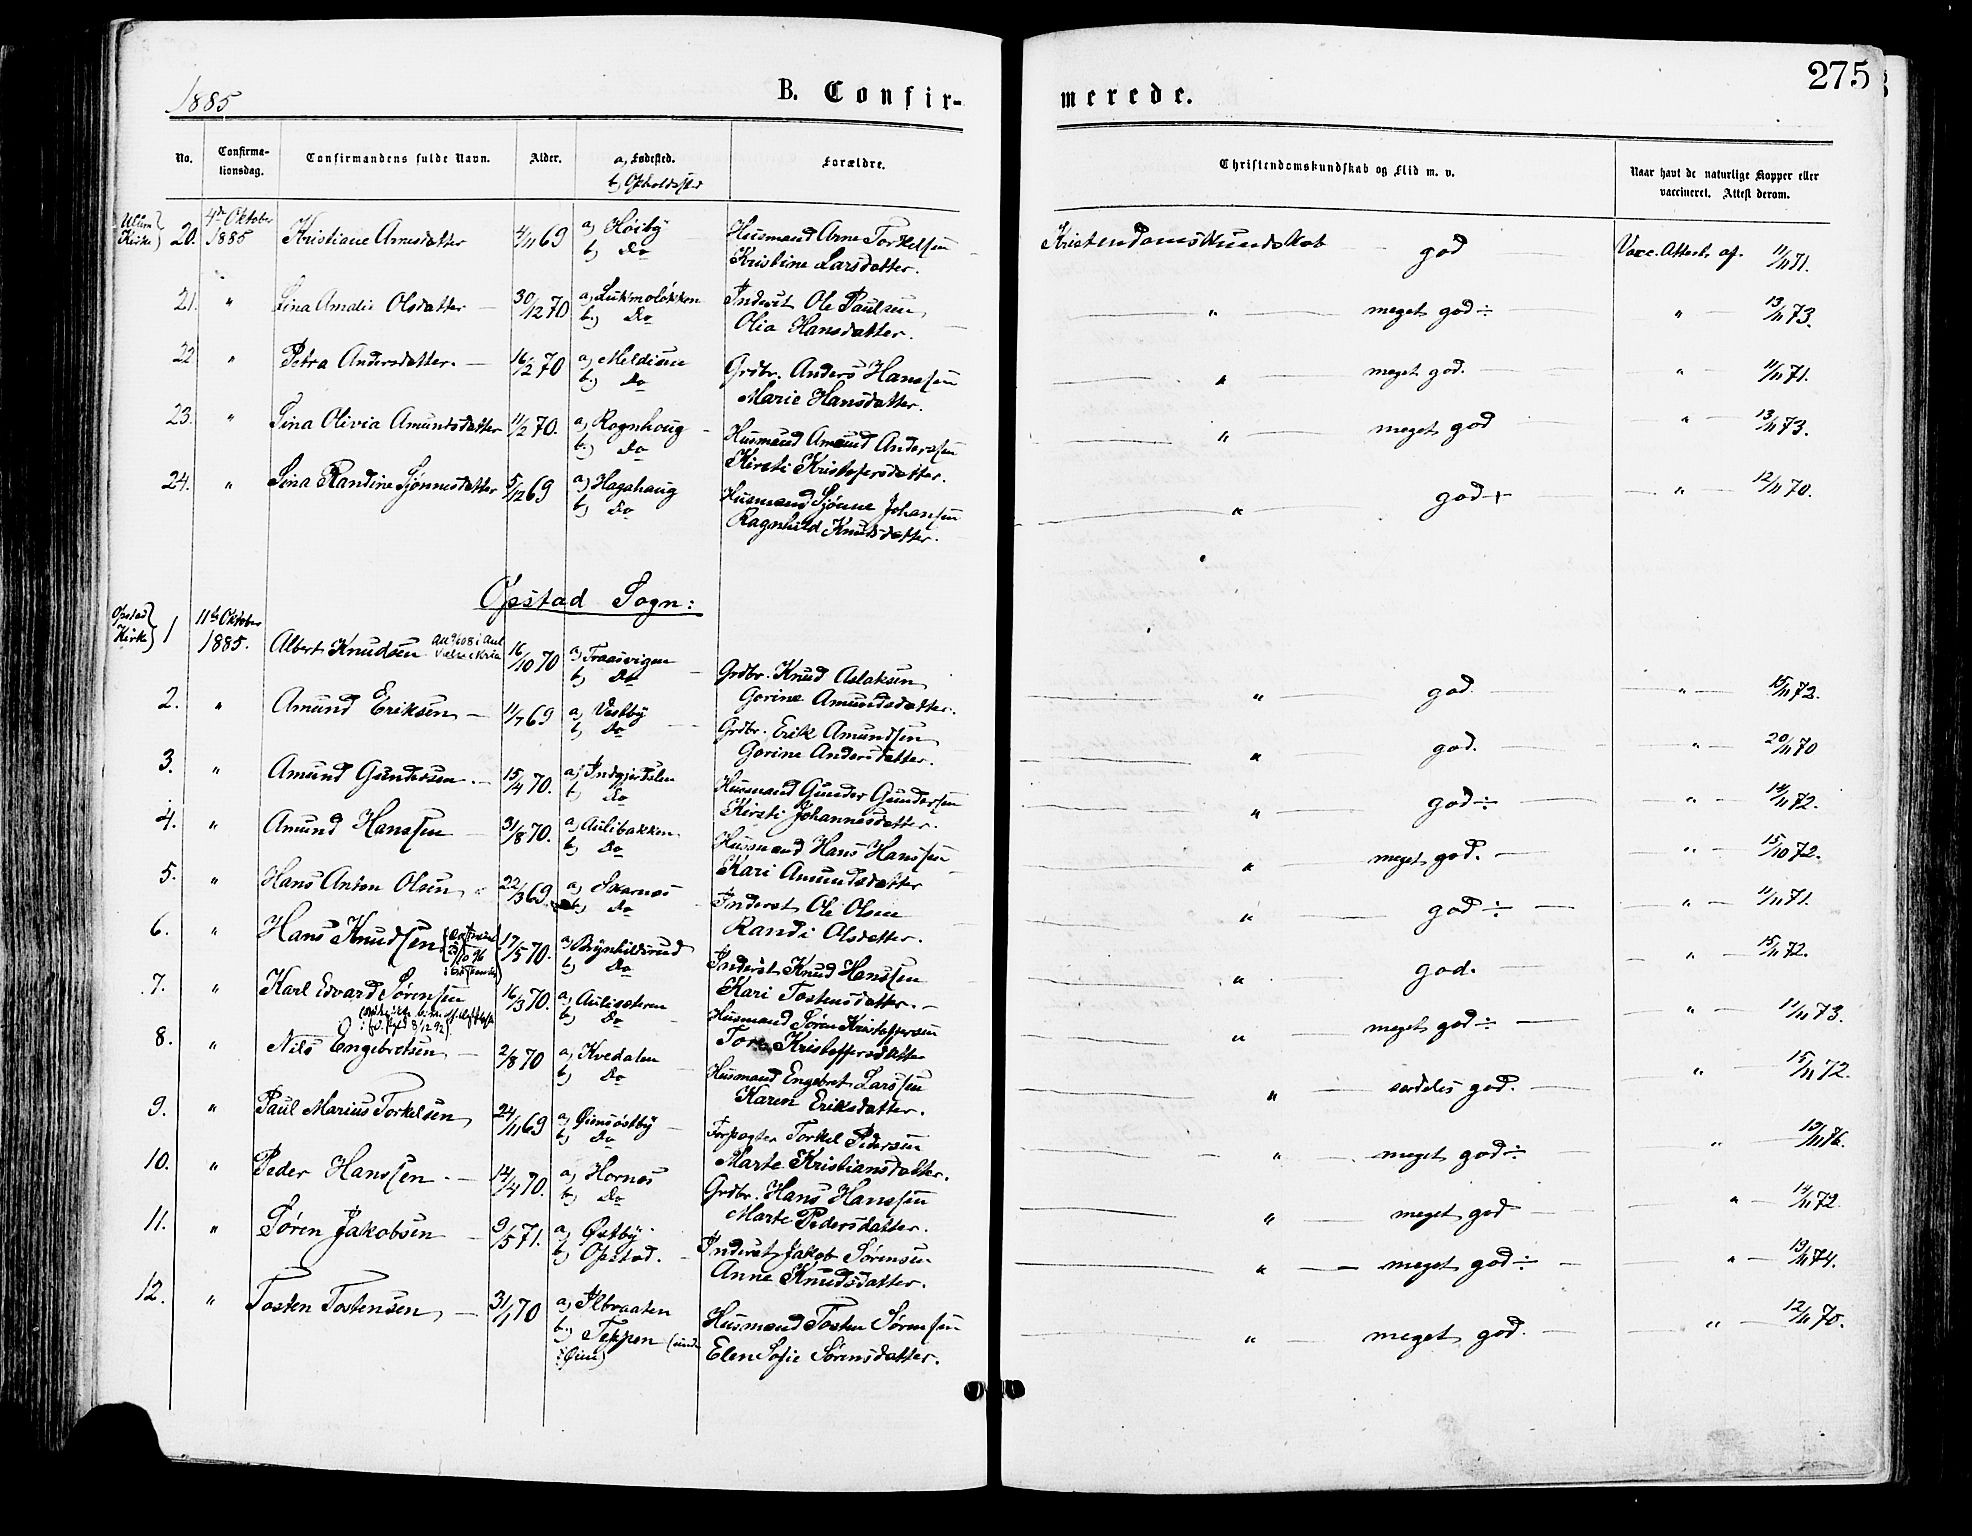 1885
B. Confir-
merede.
275
No.
Confirma-
tionsdag.
Confirmandens fulde Navn.
Alder.
a, Fødested.
b, Opholdssted
Forældre.
Christendomskundskab og Flid m. v.
Naar havt de naturlige Kopper eller
vaccineret. Attest derom.
Kirke 20. 4de Oktober 1885 Kristiane Arnesdatter 4/11 69 a, Høiby b, Do Husmand Arne Torkelsen Kristendomskundskab god Vacc. Attest af 11/11 71.
Kristine Larsdatter.
21. " Lina Amalie Olsdatter 30/12 70 a, b, Do Inderst Ole Paulsen " meget god ÷ " 13/11 73.
Olia Hansdatter.
22 " Petra Andersdatter. 16/2 70 a, b, Do Grdbr. Anders Hanssen " meget god. " 11/11 71.
Marie Hansdatter.
23. " Olivia Amundsdatter 11/2 70. a, Rognhoug b, Do Husmand Amund Anderssen " meget god " 13/11 73.
Kirsti Kristofersdatter.
24. " Randine Sjønnesdatter 5/12 69 a, Hagahaug b, Do Husmand Sjønne Johansen " god + " 12/11 70.
Ragnhild Knudsdatter.
Opstad Sogn:
Opstad
Kirke 1 11te Oktober 1885. Albert Knudsen 16/10 70 a, Fraasvigen b, Do Grdbr. Knud Aslaksen " god. " 15/11 72.
Gorine Amundsdatter.
2. " Amund Eriksen 11/7 69 a, Vestby b, Do Grdbr. Erik Amundsen " god. " 20/11 70
Gorine Andersdatter.
3. " Amund Gundersen. 15/4 70. a, Indgjerdslen b, Do Husmand Gunder Gundersen " god ÷ " 14/11 72.
Kirsti Johannesdatter.
4. " Amund Hanssen 31/8 70. a, Aulibakken b, Do Husmand Hans Hanssen " meget god. " 15/10 72.
Kari Amundsdatter
5. " Hans Anton Olsen 22/3 69. a, Skarnes b, Do Inderst Ole Olsen " god ÷ " 11/11 71.
Randi Olsdatter.
6. " Hans Knudsen 17/5 70. a, Brynhildsrud b, Do Inderst Knud Hanssen " god. " 15/11 72.
Kari Tostensdatter.
7. " Karl Edvard Sørensen 16/3 70. a, Aulisæteren b, Do Husmand Søren Kristoffersen " meget god ÷ " 11/11 73.
Kristoffersdatter
8. " Nils Engebretsen 2/8 70 a, Kvedalen b, Do Husmand Engebret Larssen " særdeles god. " 15/11 72.
Karen Eriksdatter.
9. " Paul Marius Torkelsen 24/11 69 a, b, Do Forpagter Torkel Pedersen " meget god ÷ " 13/11 76.
Marte Kristiansdatter.
10. " Peder Hanssen. 14/4 70. a, Hornes b, Do Grdbr. Hans Hanssen " meget god " 14/11 72.
Marte Pedersdatter.
11. " Søren Jakobsen 9/5 71. a, Østby b, Opstad. Inderst Jakob Sørensen " meget god ÷ " 13/11 74.
Anne Knudsdatter.
12. " Tosten Tostensen 31/1 70 a, Ilbraaten b, Teppen (under Øiine) Husmand Tosten Sørensen " meget god. " 12/11 70.
Elen Sofie Sørensdatter.